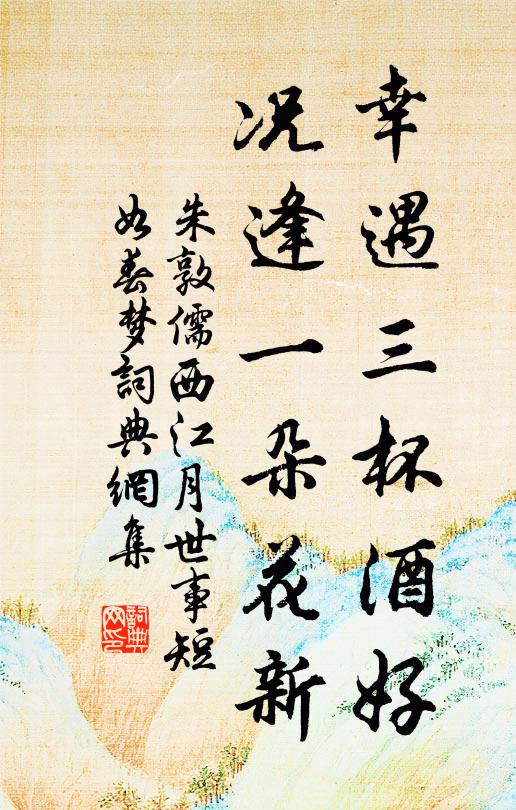 幸遇三杯酒好
况逢一朵花新
朱敦儒西江月世事短
如春梦詞典網集
詞典
网印